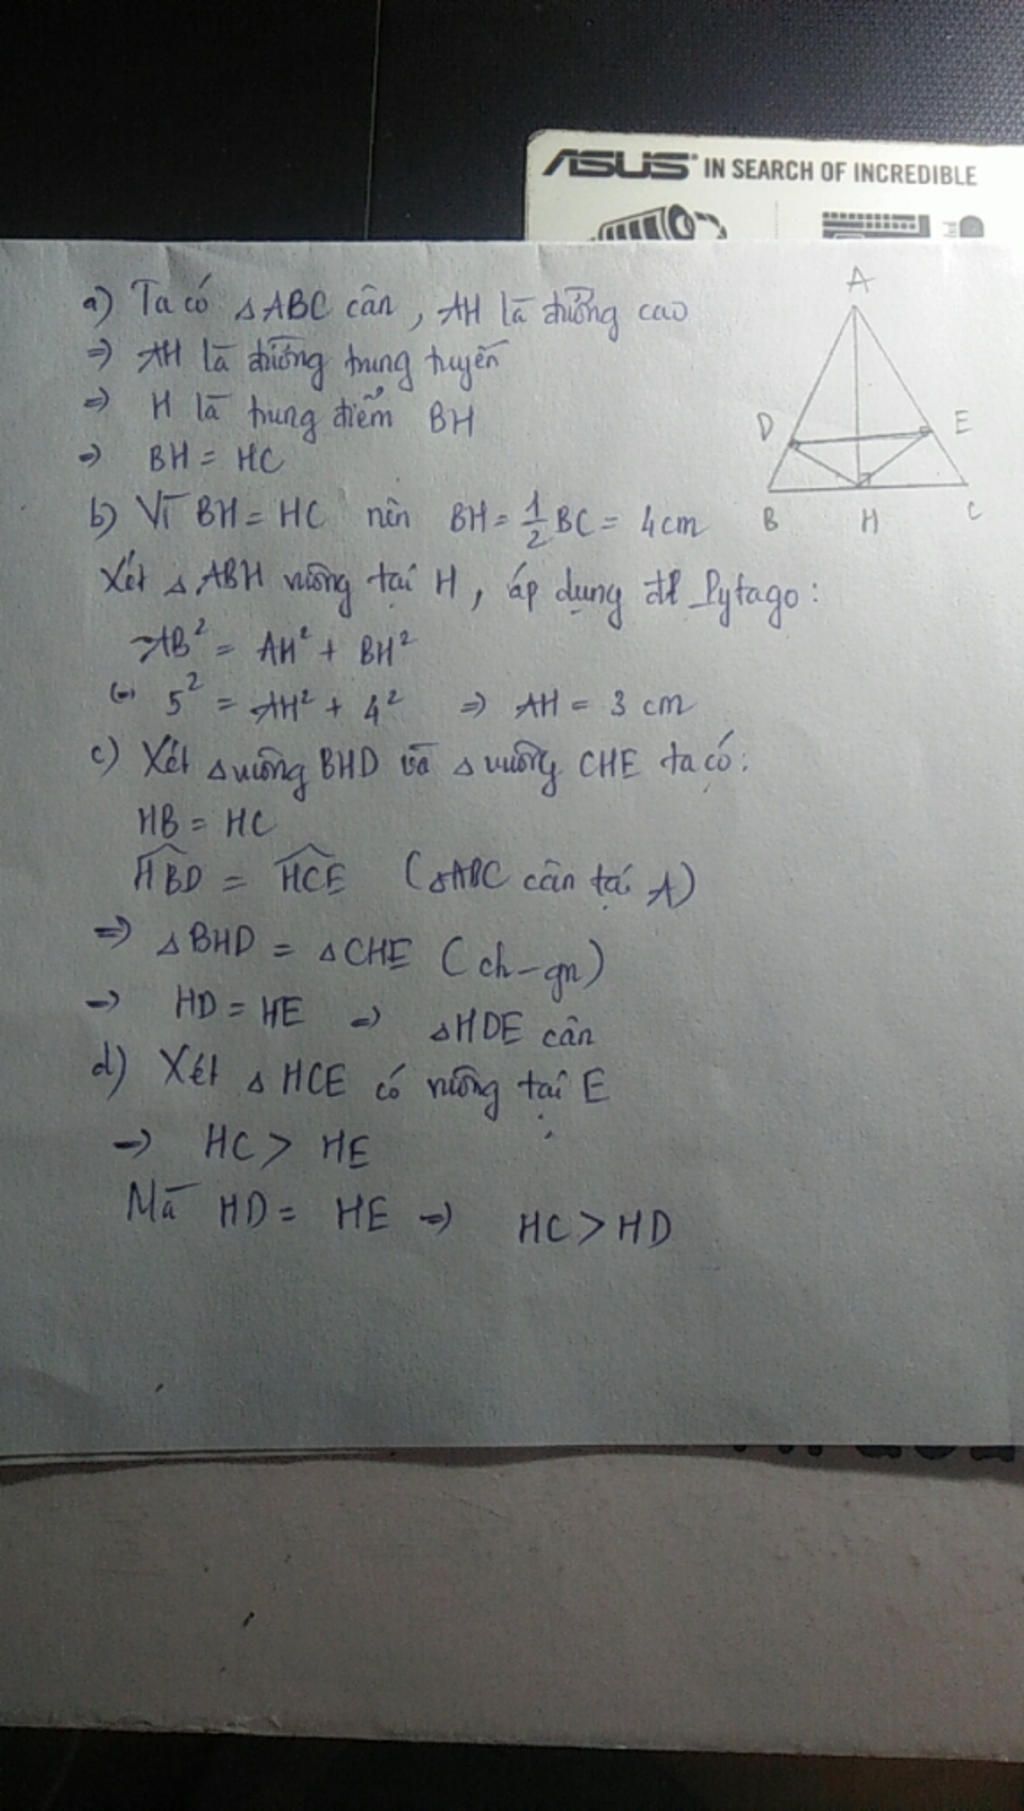 ASUS IN SEARCH OF INCREDIBLE
A
D
E
B
H
C
a) Ta có △ABC cân, AH là đường cao
=> AH là đường trung tuyến
=> H là trung điểm BH
=> BH = HC
b) Vì BH = HC nên BH = 1/2 BC = 4cm
Xét △ABH vuông tại H, áp dụng đl Pytago:
AB² = AH² + BH²
(=) 5² = AH² + 4² => AH = 3 cm
c) Xét △vuông BHD và △vuông CHE ta có:
HB = HC
\widehat{HBD} = \widehat{HCE} (△ABC cân tại A)
=> △BHD = △CHE (ch-gn)
=> HD = HE => △HDE cân
d) Xét △HCE có vuông tại E
=> HC > HE
Mà HD = HE => HC > HD